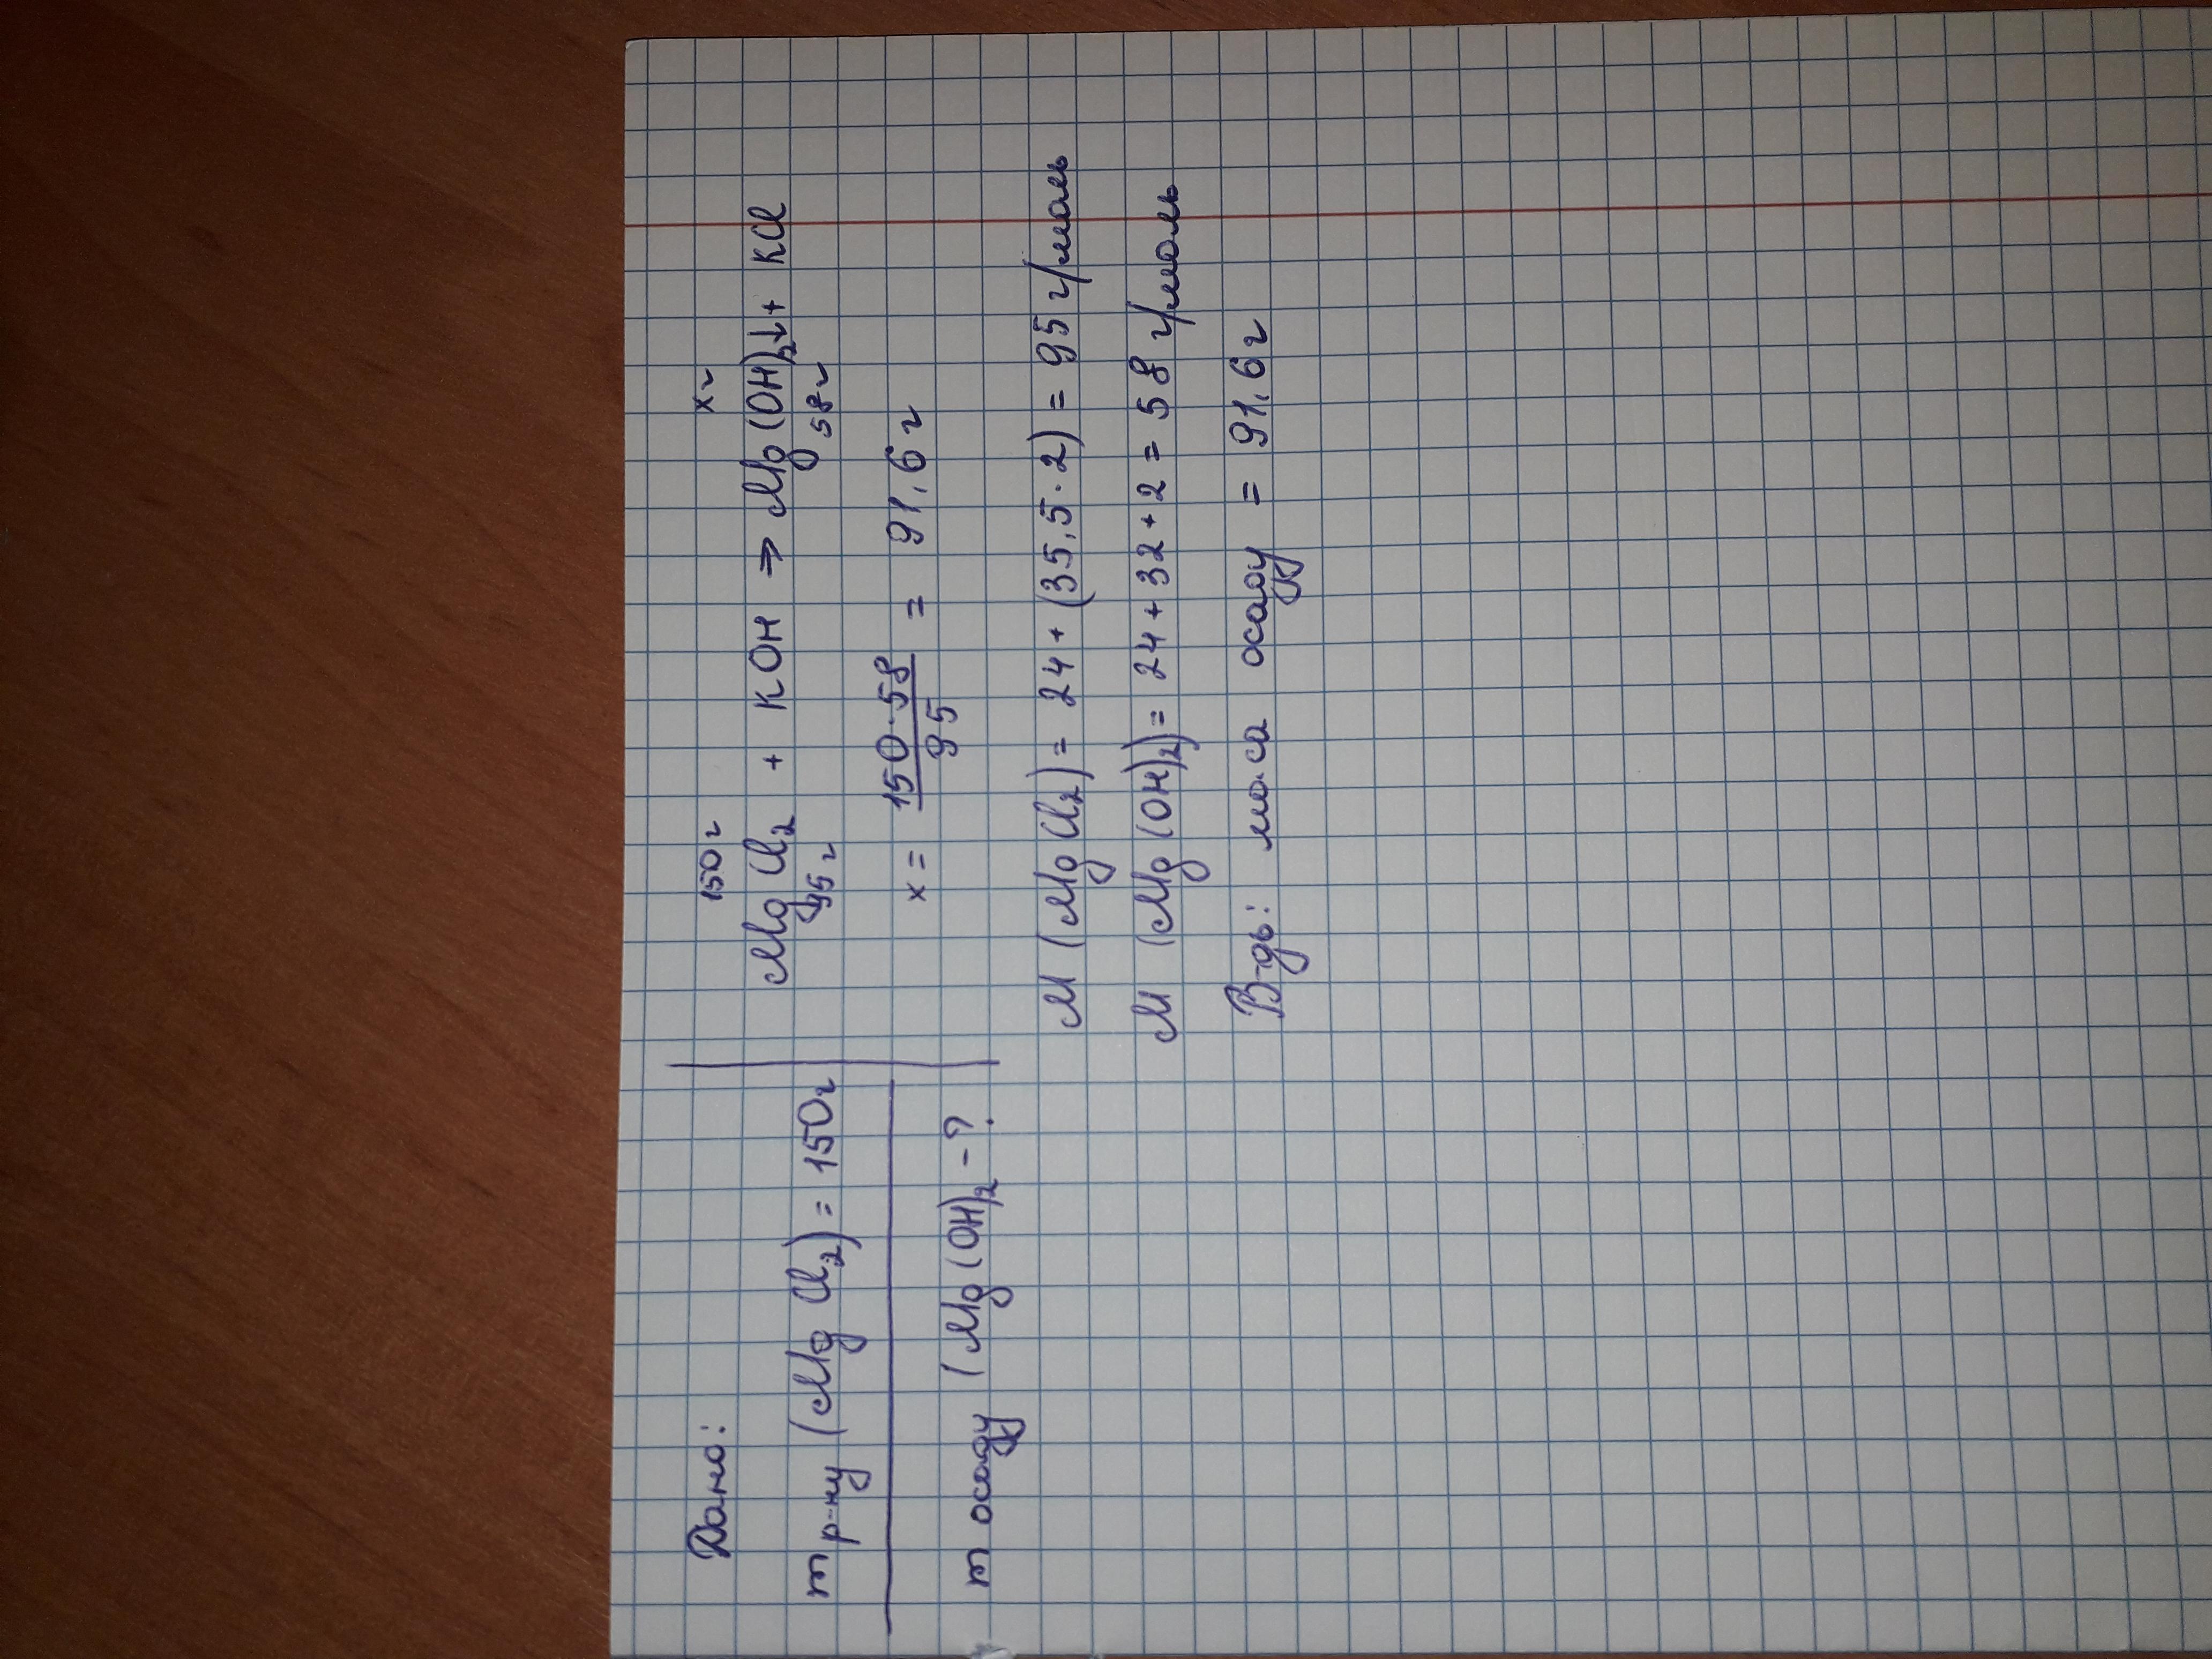 Дано:
m р-ну (MgCl₂) = 150г
m осаду (Mg(OH)₂ - ?
150г хг
MgCl₂ + KOH ⇒ Mg(OH)₂↓ + KCl
95г 58г
x = 150·58 / 95 = 91,6г
M (MgCl₂) = 24 + (35,5·2) = 95 г/моль
M (Mg(OH)₂) = 24 + 32 + 2 = 58 г/моль
В-дь: маса осаду = 91,6г